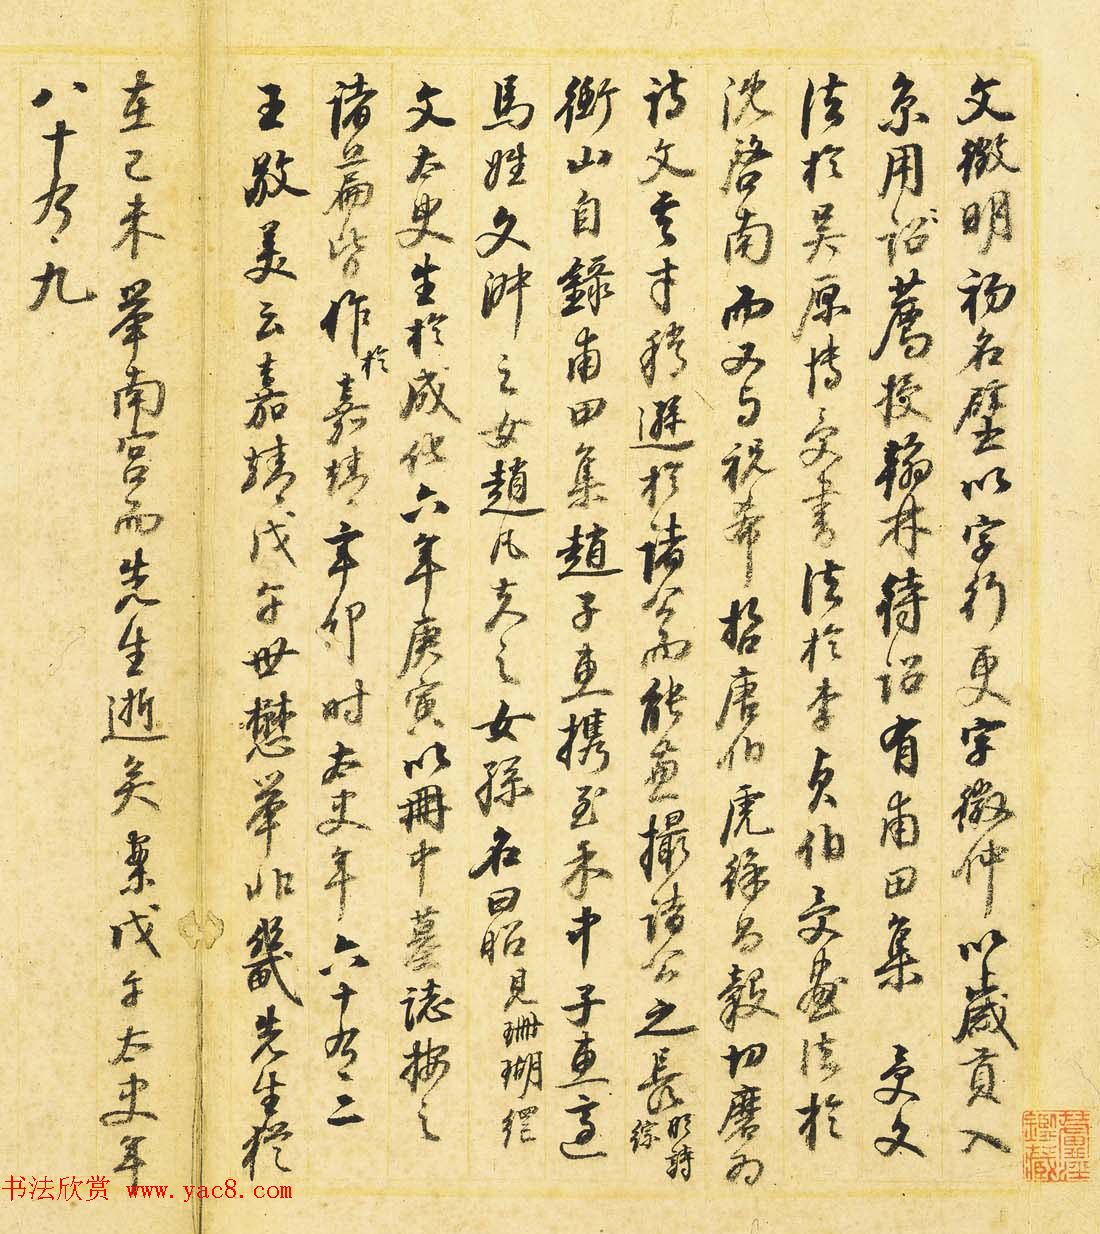 文徵明初名璧以字行更字徵仲以歲貢入
京用詔薦授翰林待詔有甫田集 受文
法於吴原博受書法於李貞伯受畫法於
沈啓南而又与祝希哲唐伯虎徐昌穀切磨为
詩文其才稍遜於諸公而能兼撮諸公之長明詩綜
衡山自錄甫田集趙子惠携至禾中子惠適
馬姓文淵之女趙凡夫之女孫名曰昭見珊瑚網
文太史生於成化六年庚寅以冊中墓誌按之
諸篇皆作於嘉靖辛卯时太史年六十有二
王敬美云嘉靖戊午世懋舉非畿先生猶
在己未舉南宫而先生逝矣案戊午太史年
八十有九
鑑藏
书法欣赏 www.yac8.com